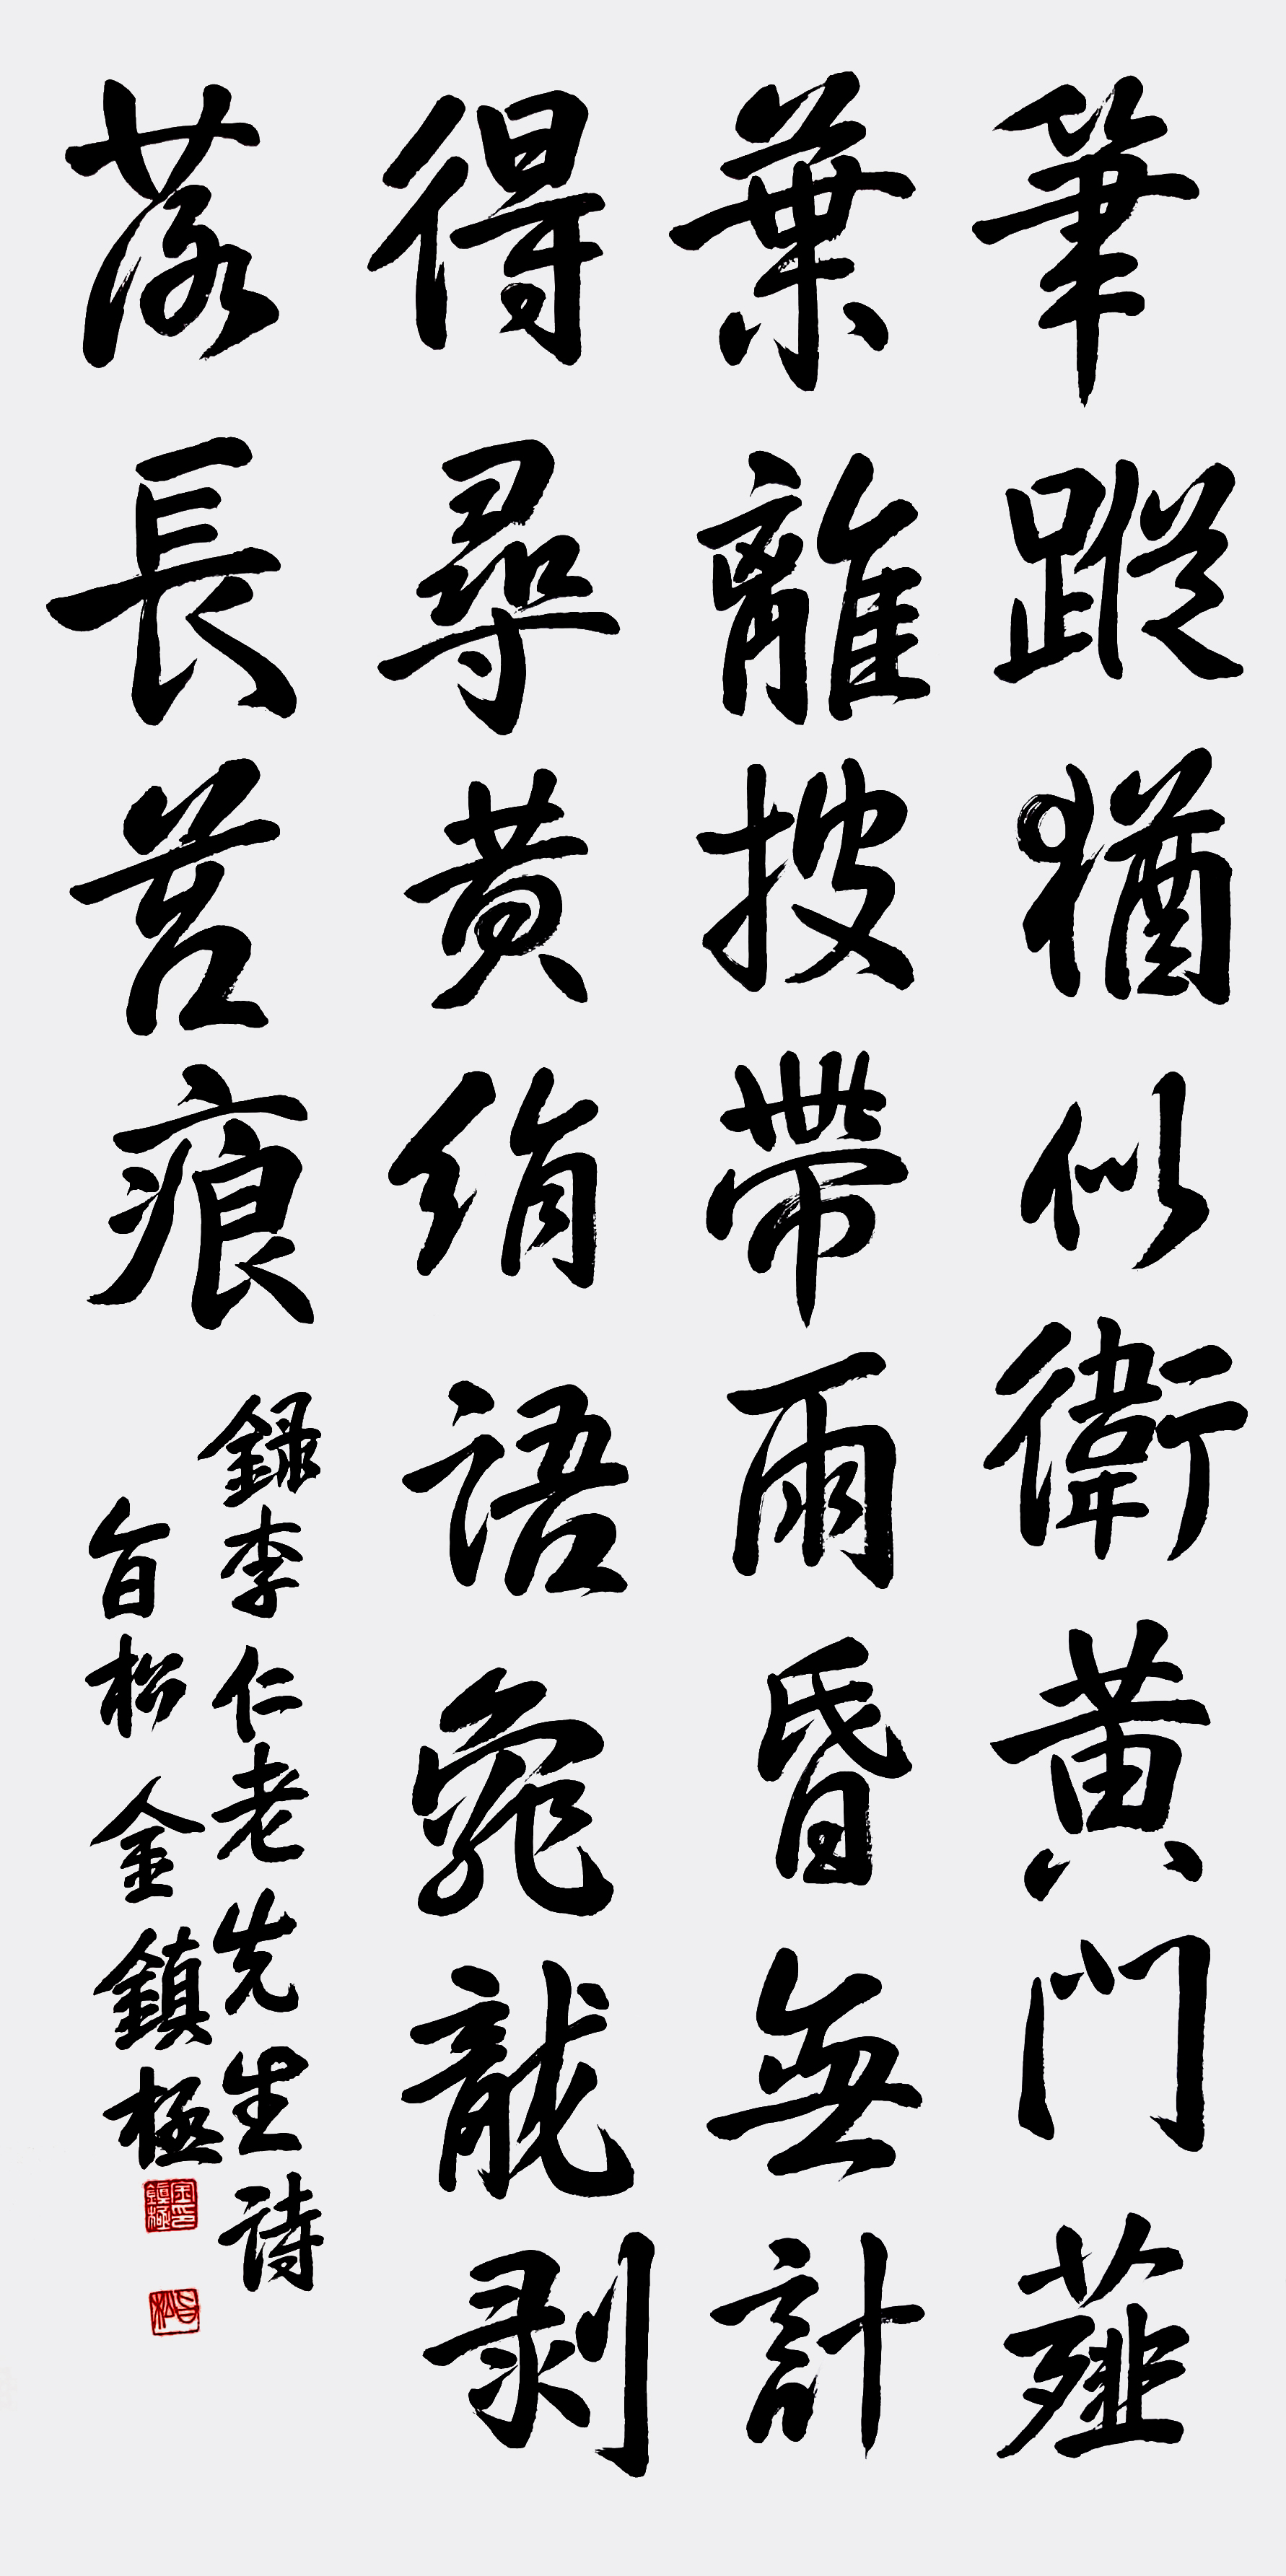 筆蹤猶似衛黃門薤
葉離披帶雨昏無計
得尋黃絹語龜龍剥
落長苔痕
錄李仁老先生詩
百松 金鎮極